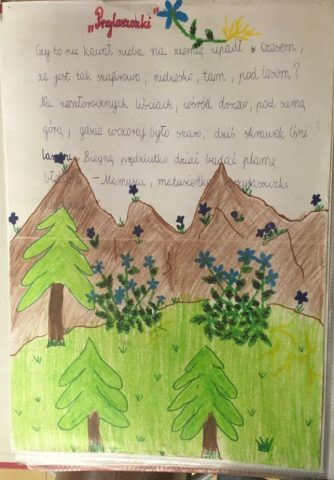 „Przylaszczki"
Czy to nie kawał nieba na ziemię upadł czasem,
że jest tak szafirowo, niebiesko, tam, pod lasem?
Na zeszłorocznych liściach, wśród drzew, pod samą
górą, gdzie wczoraj było szaro, dziś skrawek lśni
lazuru. Biegną prędziutko dzieci badać plamę
- Mamusiu, matusieńko, przylaszczki